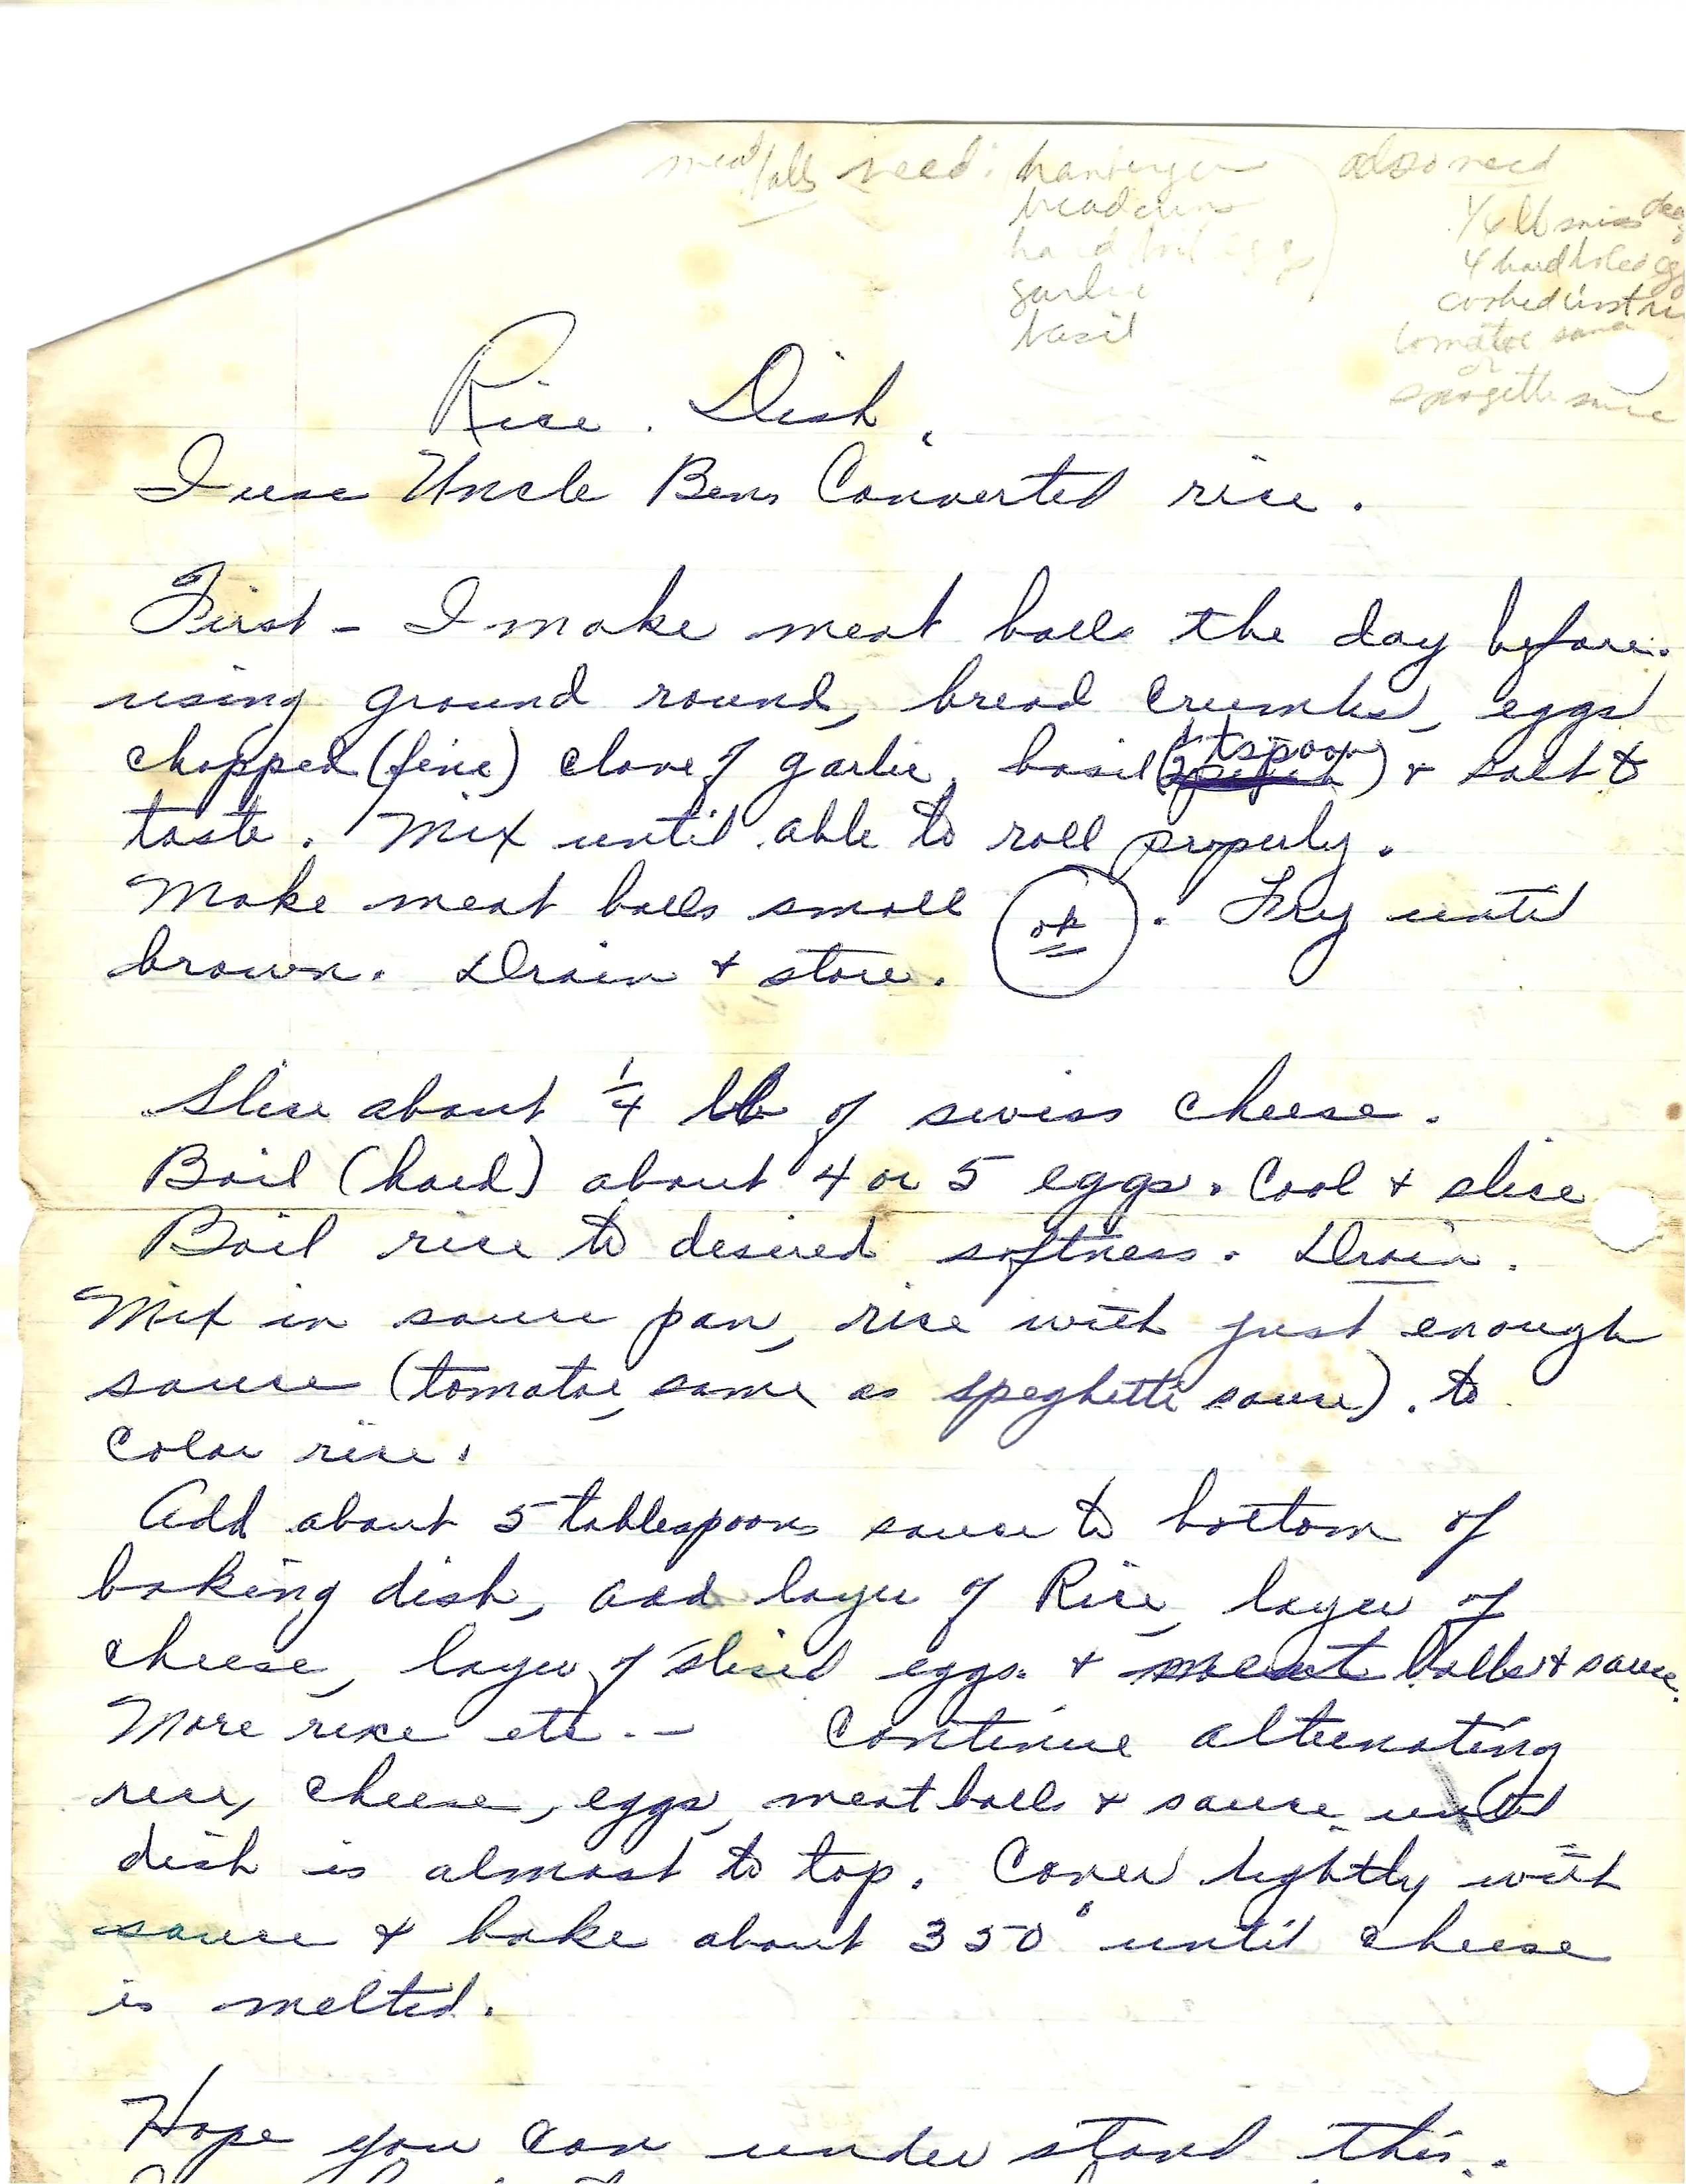 meat balls need: hamberger
breadcrums
hard boil eggs
garlic
basil
also need
1/4 lb swiss
4 hard boiled eg
cooked inst ri
tomatoe sauce
or
spagetti sauce
Rice Dish
I use Uncle Bens Converted rice.
First - I make meat balls the day before.
using ground round, bread crumbs, eggs
chopped (fine) clove of garlic, basil (1 tspoon) & salt to
taste. Mix until able to roll properly.
Make meat balls small (ok). Fry until
brown. Drain & store.
Slice about 1/4 lb of swiss cheese.
Boil (hard) about 4 or 5 eggs. Cool & slice
Boil rice to desired softness. Drain.
Mix in sauce pan, rice with just enough
sauce (tomatoe, same as speghetti sauce). to
color rice.
Add about 5 tablespoons sauce to bottom of
baking dish, add layer of Rice, layer of
cheese, layer of sliced eggs. & meat balls & sauce.
More rice etc. -
Continue alternating
rice, cheese, eggs, meat balls & sauce until
dish is almost to top. Cover lightly with
sauce & bake about 350° until cheese
is melted.
Hope you can under stand this.